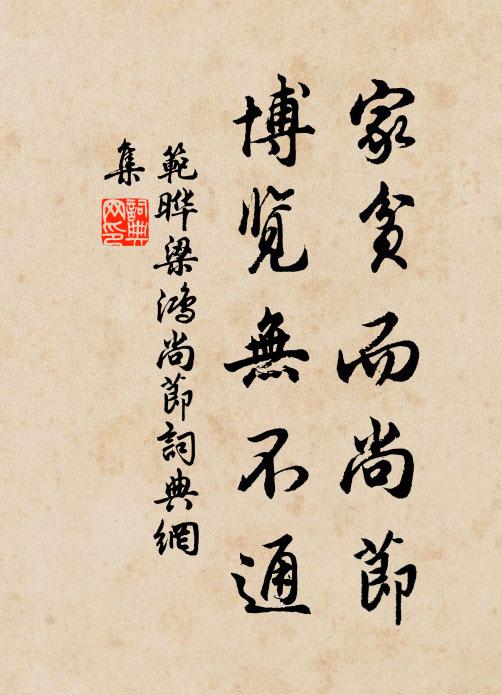 家贫而尚節
博览無不通
範晔梁鴻尚節詞典網
集
詞典
网印